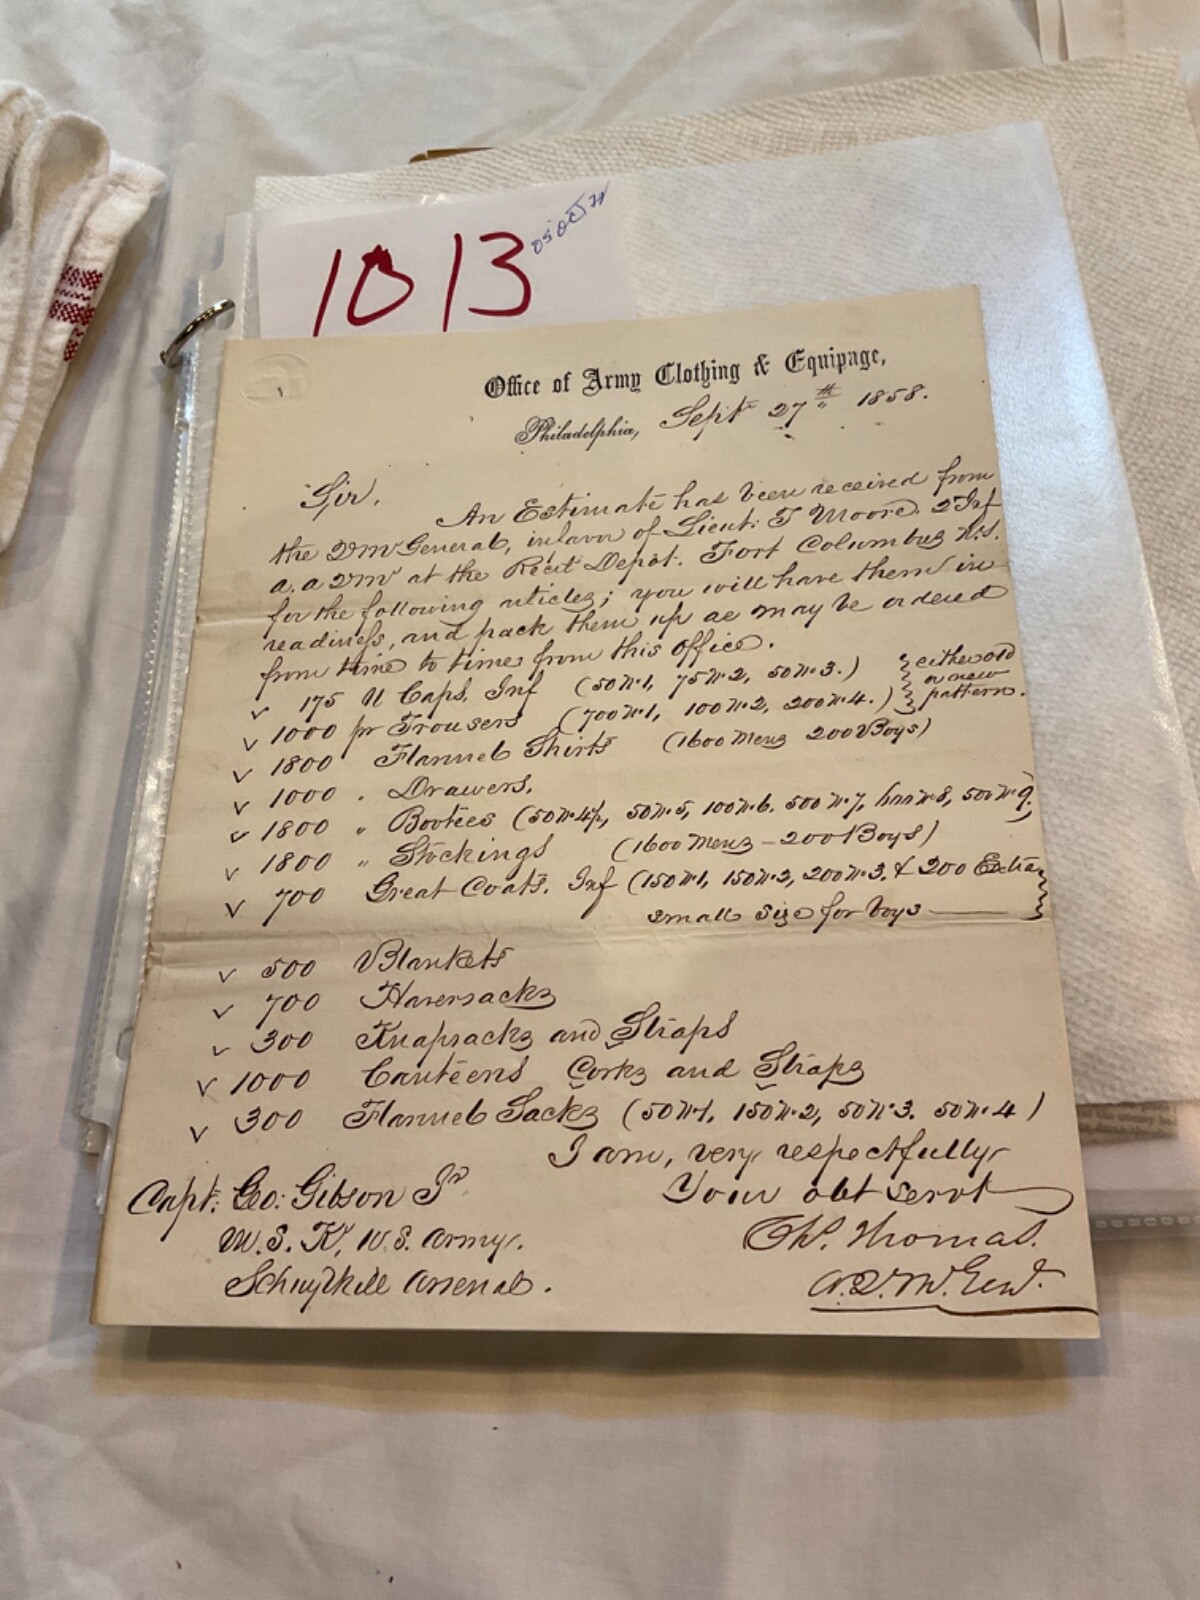 1013
Office of Army Clothing & Equipage,
Philadelphia, Sept 27th 1858.
Sir.
An Estimate has been received from
the 2d M General, in favor of Lieut: T Moore. 2 Inf
a. a 2 M at the Recit Depôt. Fort Columbus N.Y.
for the following articles; you will have them in
readiness, and pack them up as may be ordered
from time to time from this office.
175 U Caps, Inf (50 No 1, 75 No 2, 50 No 3.) either old
1000 pr Trousers (700 No 1, 100 No 2, 200 No 4.) or new pattern.
1800 Flannel Shirts (1600 Mens 200 Boys)
1000 " Drawers.
1800 " Bootees (50 No 4½, 50 No 5, 100 No 6. 500 No 7, No 8, 500 No 9.
1800 " Stockings (1600 Mens - 200 Boys)
700 Great Coats. Inf (150 No 1, 150 No 2, 200 No 3. & 200 Extra
small size for boys
500 Blankets
700 Haversacks
300 Knapsacks and Straps
1000 Canteens Corks and Straps
300 Flannel Sacks (50 No 1, 150 No 2, 50 No 3. 50 No 4)
I am, very respectfully
Your obt servt
Capt: Geo: Gibson Jr
Chs. Thomas.
M. S. K, U.S. Army.
A. Q. M. Genl.
Schuylkill Arsenal.